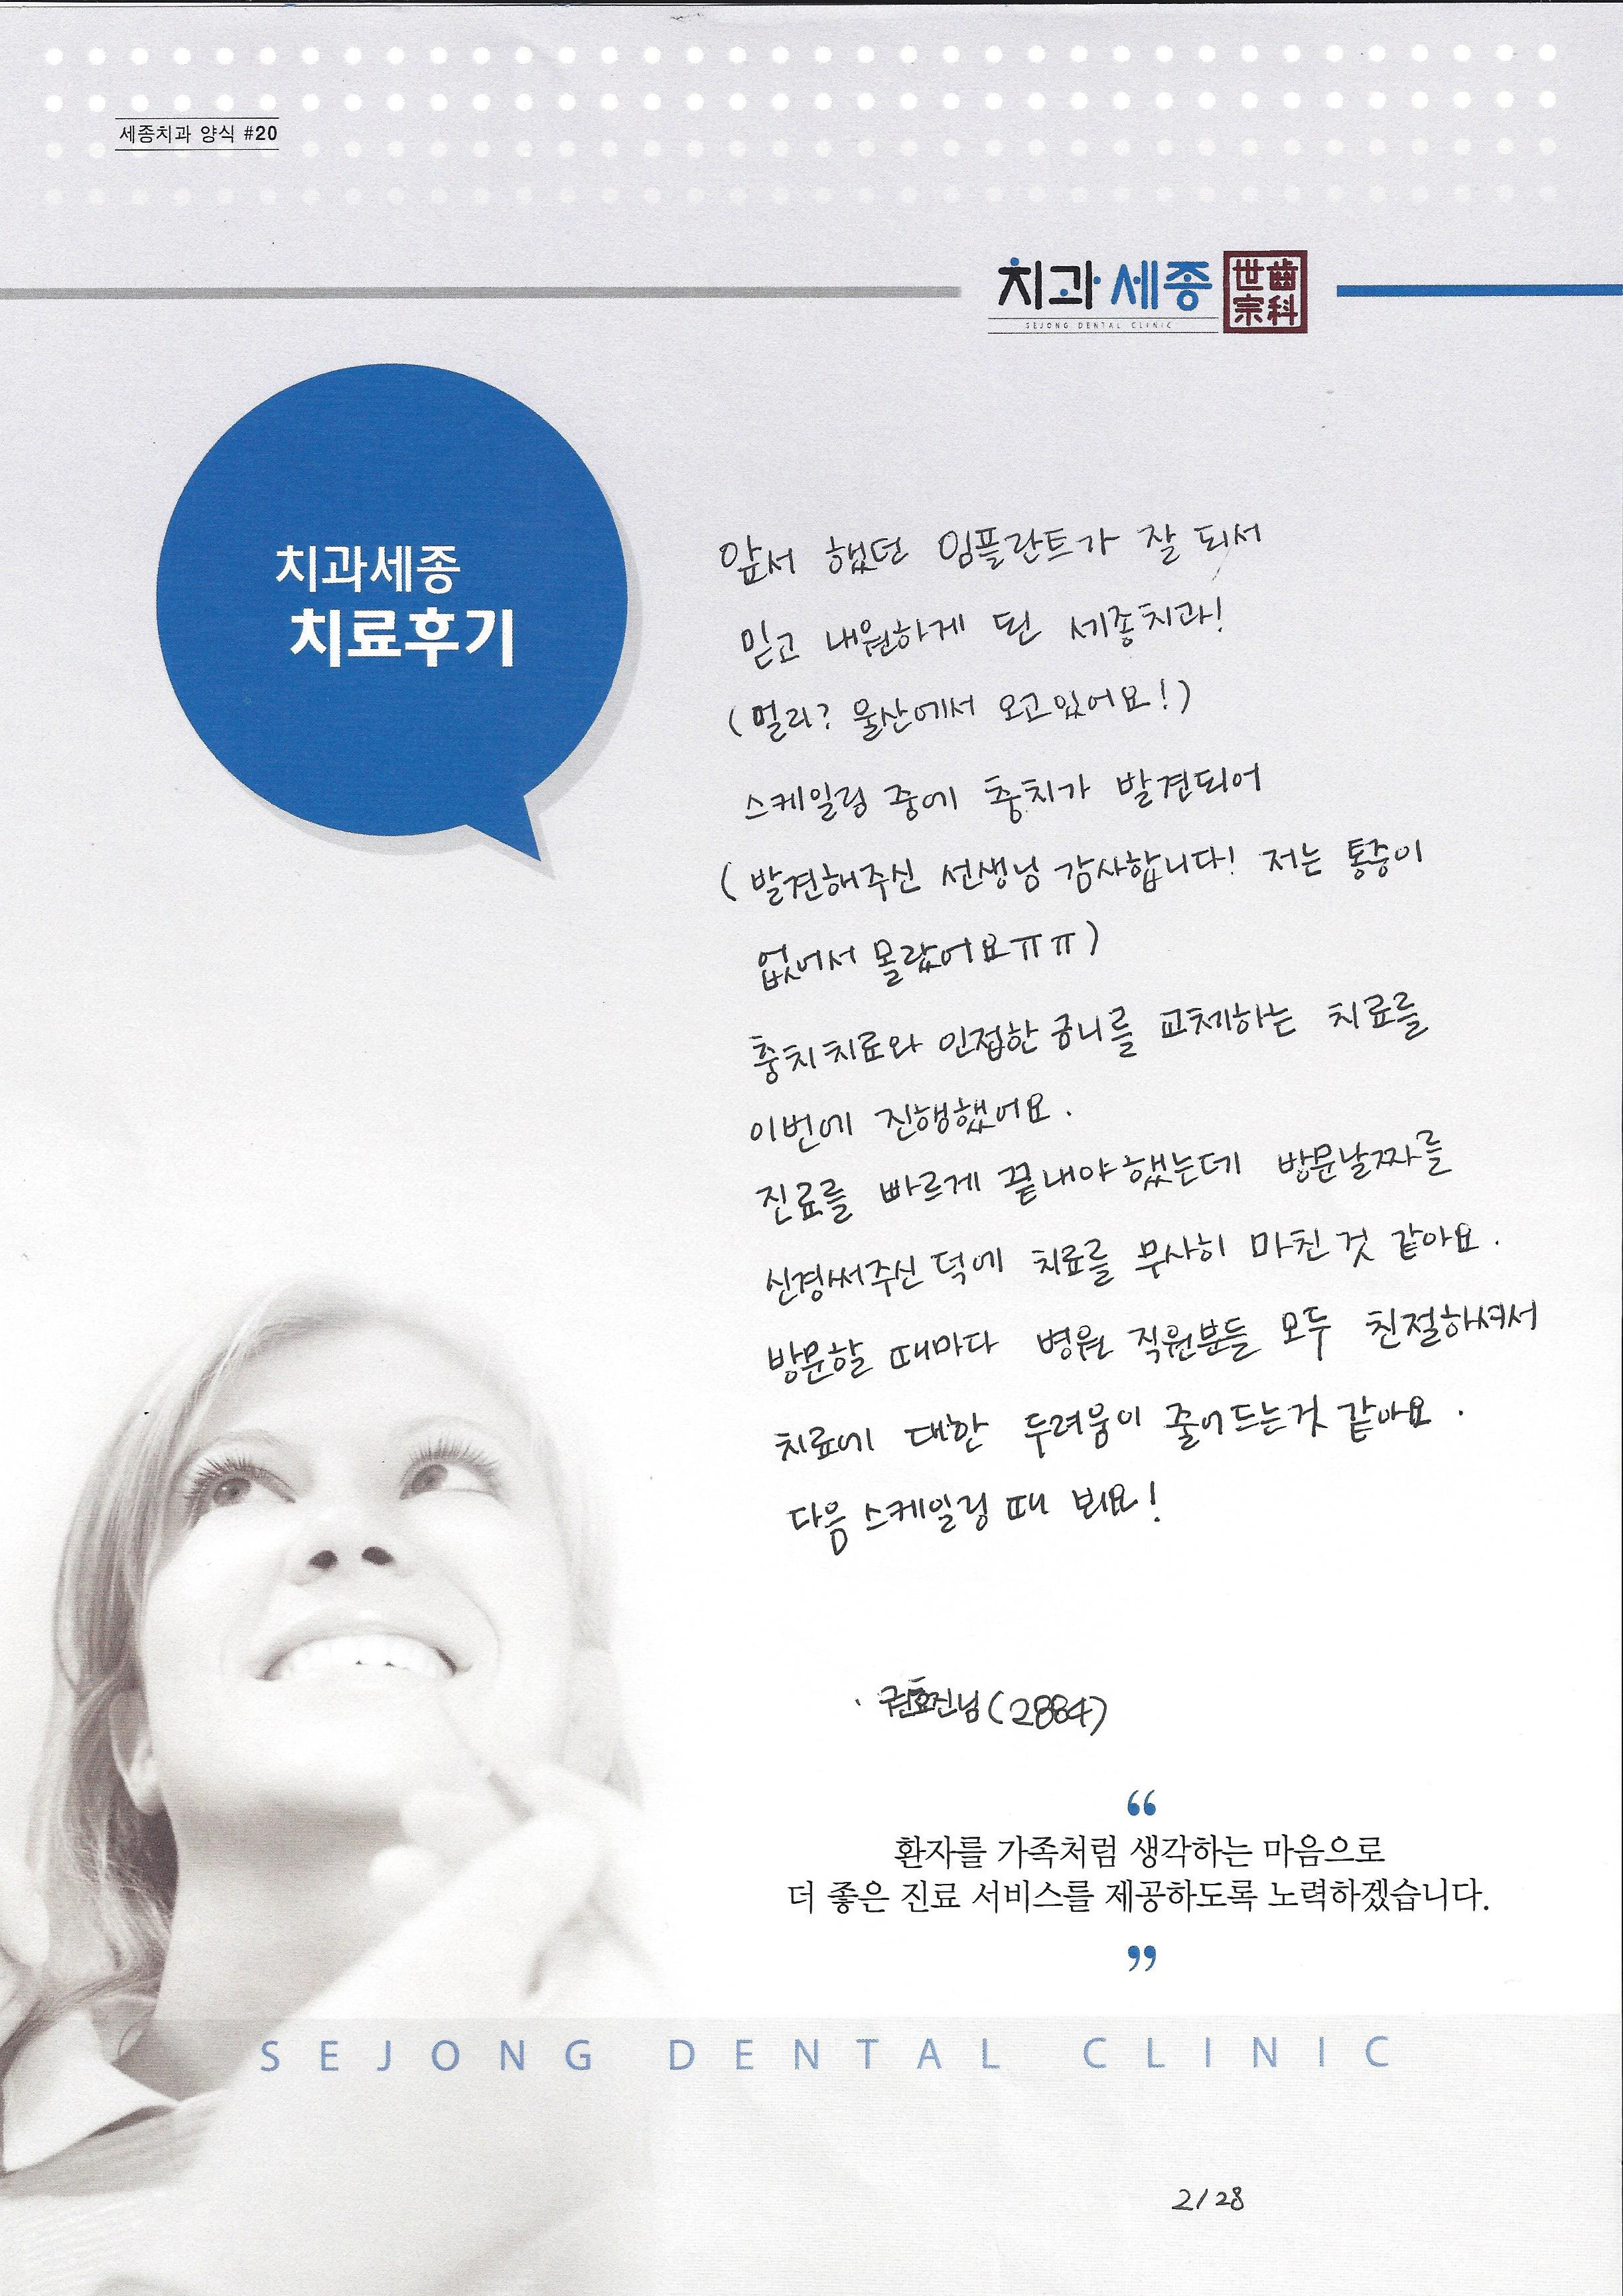 세종치과 양식 #20
치과세종
世齒
宗科
SEJONG DENTAL CLINIC
치과세종
치료후기
앞서 했던 임플란트가 잘 되서
믿고 내원하게 된 세종치과!
(멀리? 울산에서 오고있어요!)
스케일링 중에 충치가 발견되어
(발견해주신 선생님 감사합니다! 저는 통증이
없어서 몰랐어요ㅠㅠ)
충치치료와 인접한 금니를 교체하는 치료를
이번에 진행했어요.
진료를 빠르게 끝내야했는데 방문날짜를
신경써주신 덕에 치료를 무사히 마친 것 같아요.
방문할 때마다 병원 직원분들 모두 친절하셔서
치료에 대한 두려움이 줄어드는것 같아요.
다음 스케일링 때 봬요!
(2884)
“
환자를 가족처럼 생각하는 마음으로
더 좋은 진료 서비스를 제공하도록 노력하겠습니다.
”
SEJONG DENTAL CLINIC
2/28